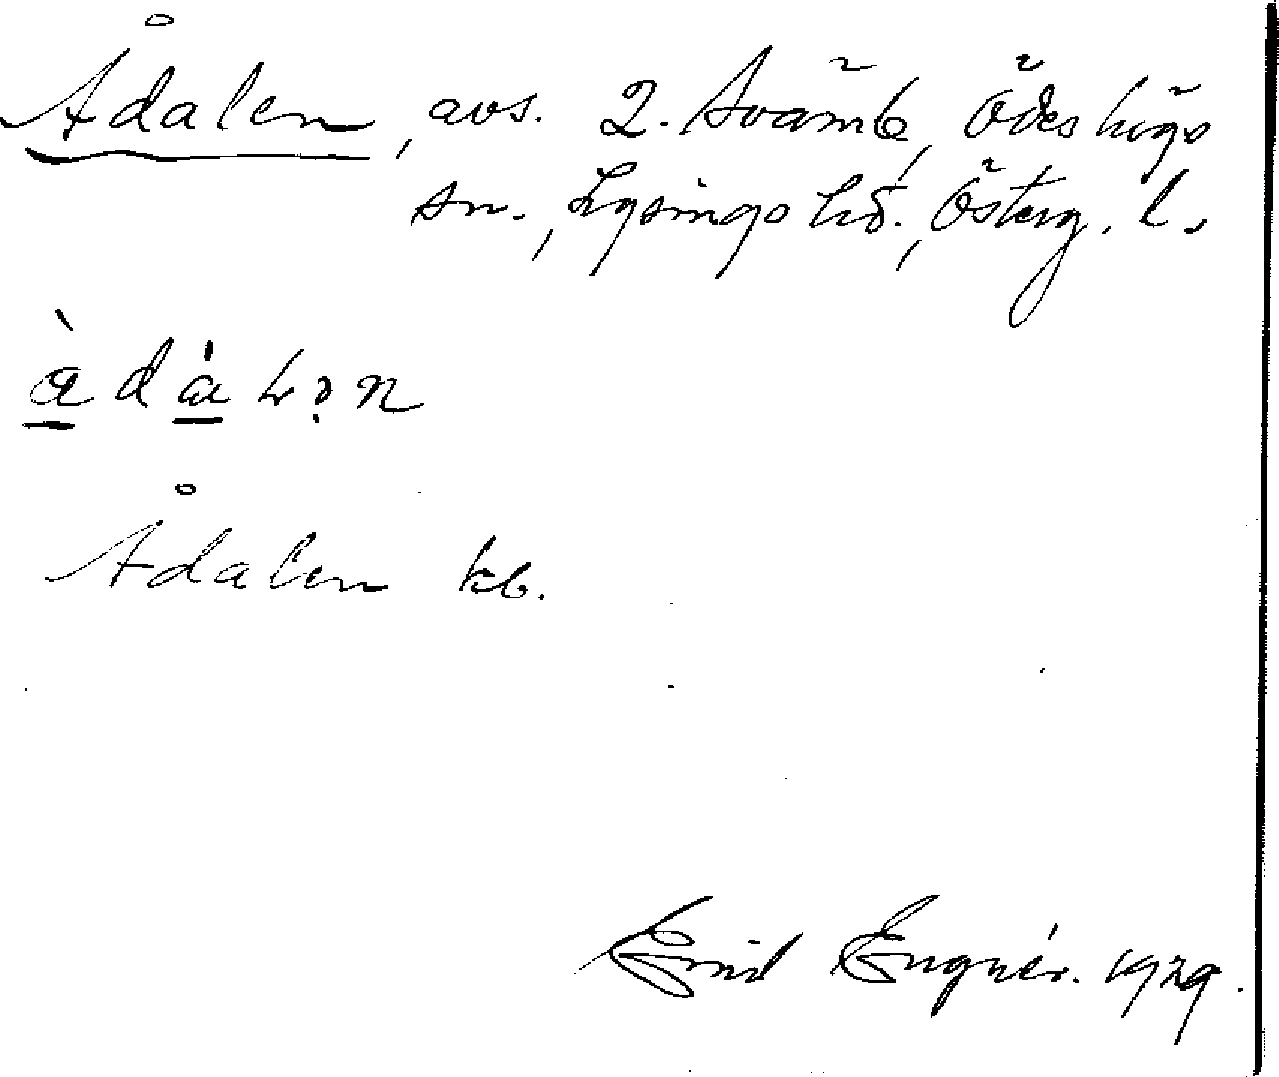 Ådalen, avs. 2. Svämb, Ödeshögs
sn., Lysings hd., Österg. l.
à̲dá̲lən
Ådalen kb.
Engnér. 1929.